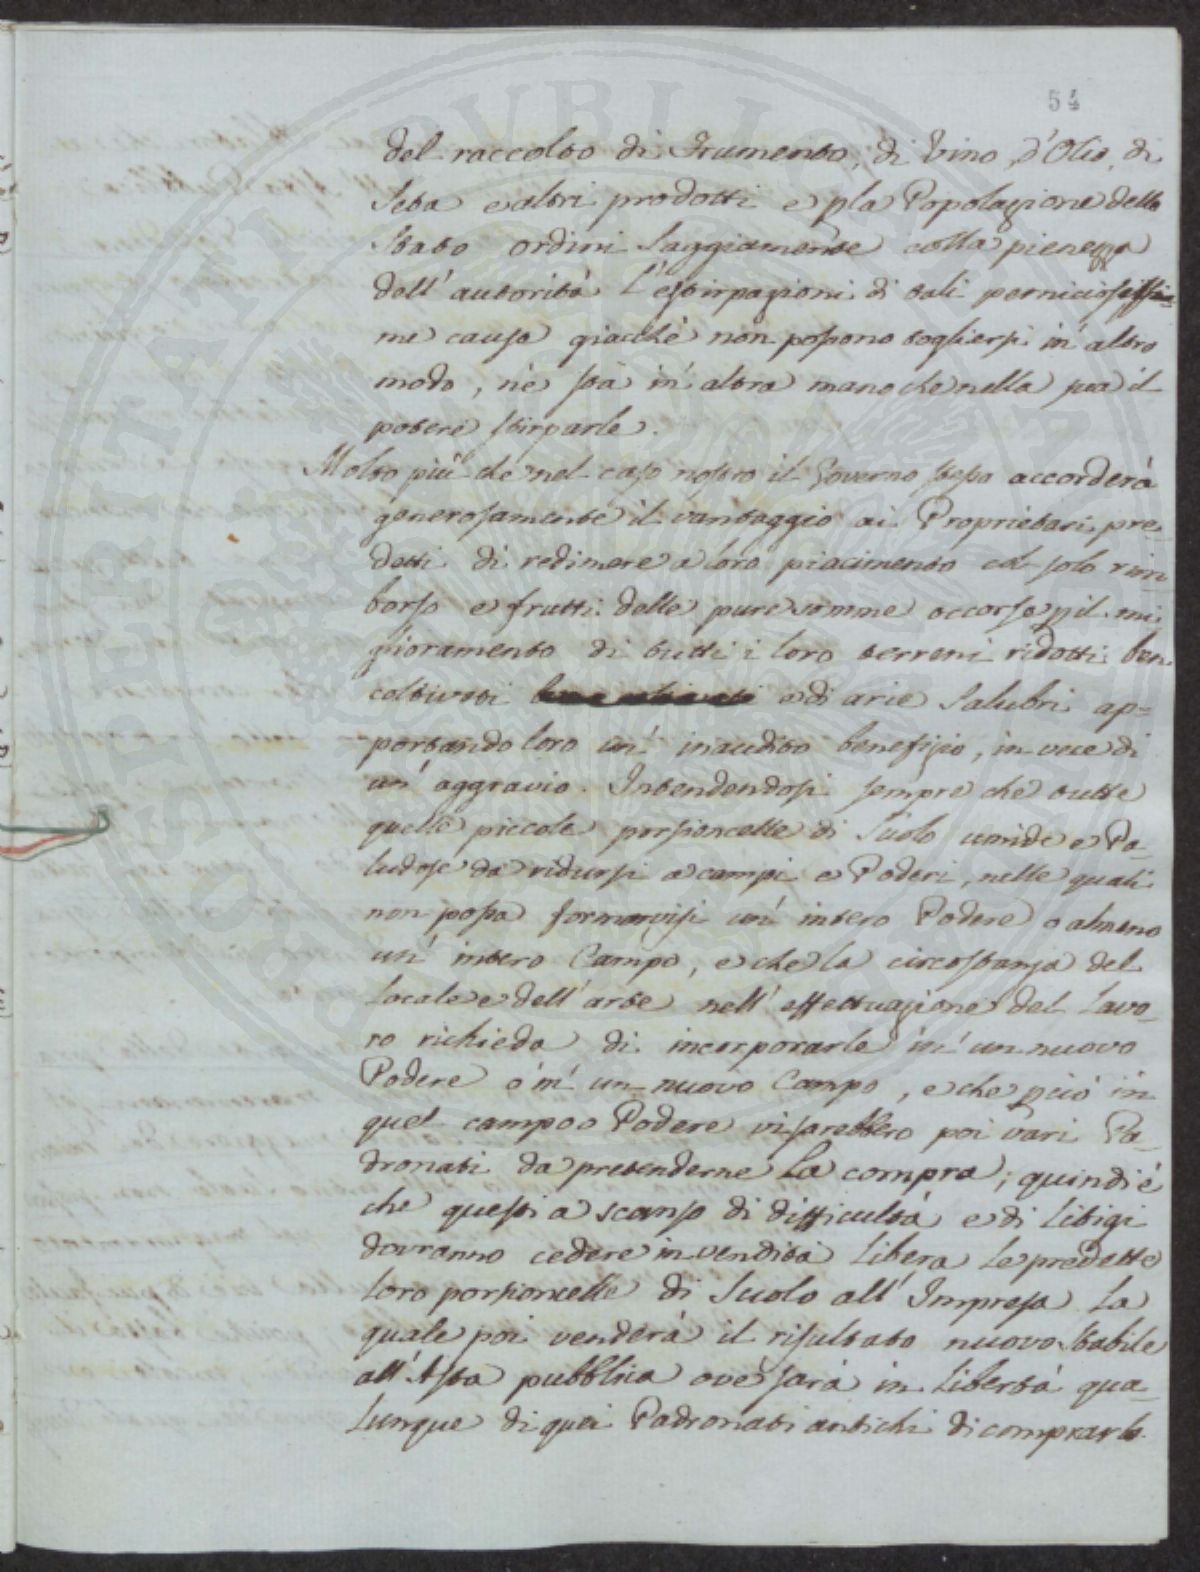 54
del raccolto di Frumento, di Vino, d'Olio, di
Seta e altri prodotti e p la Popolazione dello
Stato ordini saggiamente colla pienezza
dell' autorità l'estirpazioni di tali perniciosissi-
me cause giacchè non possono togliersi in altro
modo, nè stà in altra mano che nella sua il
potere stirparle.
Molto più che nel caso nostro il Governo stesso accorderà
generosamente il vantaggio ai Proprietari pre-
detti di redimere a loro piacimento col solo rim
borso e frutti delle pure somme occorse p il mi-
glioramento di tutti i loro terreni ridotti ben
coltivati e di arie salubri ap=
portando loro un' inaudito benefizio, in vece di
un' aggravio. Intendendosi sempre che tutte
quelle piccole porsioncelle di Suolo umide e Pa-
ludose da ridursi a campi e Poderi, nelle quali
non possa formarvisi un' intero Podere o almeno
un' intero Campo, e che la circostanza del
Locale e dell' arte nell' effettuazione del Lavo-
ro richieda di incorporarle in un nuovo
Podere ò in un nuovo Campo, e che p ciò in
quel campo o Podere vi sarebbero poi vari Pa-
dronati da pretenderne la compra; quindi è
che questi a scanso di difficultà e di Litigi
dovranno cedere in vendita libera le predette
loro porsioncelle di Suolo all' Impresa la
quale poi venderà il risultato nuovo Stabile
all' Asta pubblica ove sarà in libertà qua-
lunque di quei Padronati antichi di comprarlo.
PROSPERITATI PUBLICAE